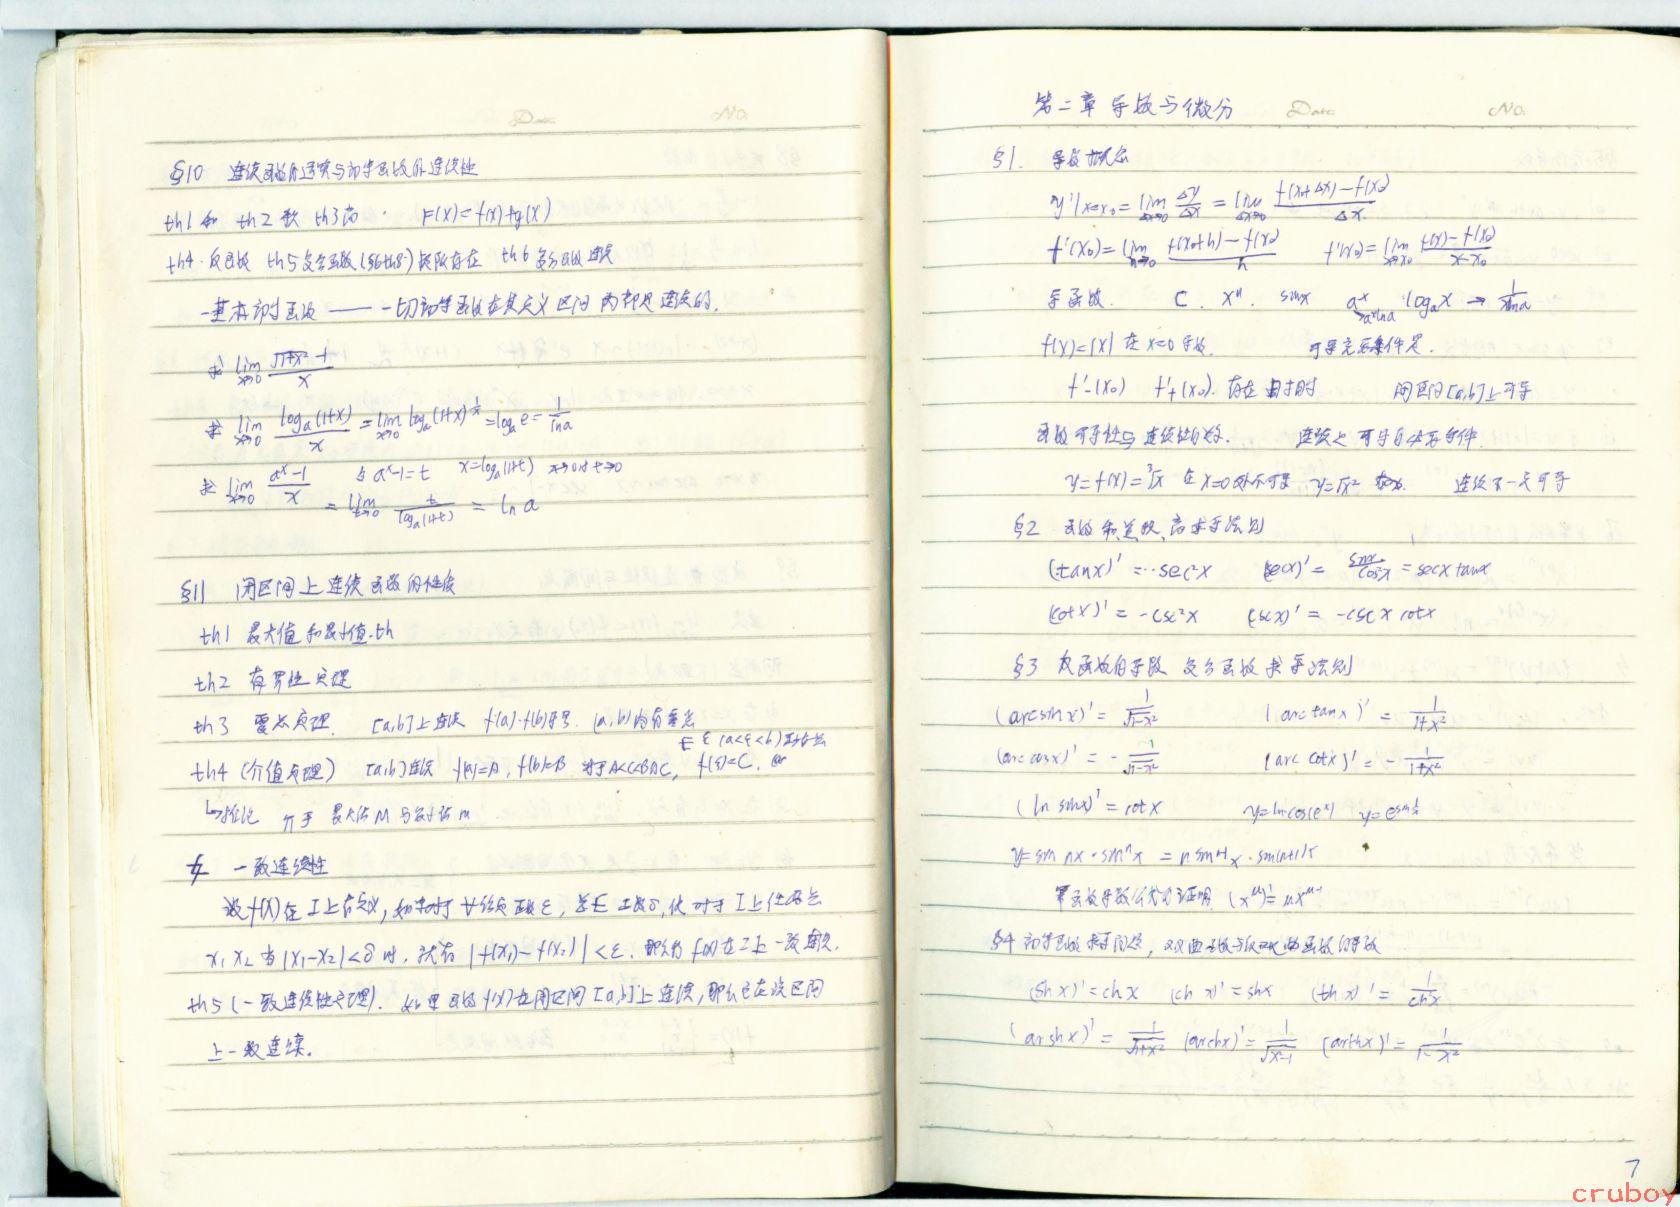 Date No.
§10 连续函数的运算与初等函数的连续性
th1 和 th2 积 th3 商 . F(x)=f(x)+g(x)
th4. 反函数 th5 复合函数(§6th8-)极限存在 th6 复合函数连续
一基本初等函数 —— 一切初等函数在其定义区间内都是连续的.
求 lim x→0 (√(1+x²)-1)/x
求 lim x→0 logₐ(1+x)/x = lim x→0 logₐ(1+x)^(1/x) = logₐe = 1/lna
求 lim x→0 (aˣ-1)/x 令 aˣ-1=t x=logₐ(1+t) x→0时t→0
= lim t→0 t/logₐ(1+t) = ln a
§11 闭区间上连续函数的性质
th1 最大值和最小值.th
th2 有界性定理
th3 零点定理. [a,b]上连续 f(a)·f(b)异号. (a,b)内有零点
ξ (a<ξ<b)
th4 (介值定理) [a,b]连续 f(a)=A, f(b)=B 对于A<C<B f(ξ)=C.
↳推论 介于最大值M与最小值m
一致连续性
设f(x)在I上有定义,如果对于∀给定正数ε,总∃正数δ,使对于I上任两点
x₁ x₂ 当|x₁-x₂|<δ时,就有|f(x₁)-f(x₂)|<ε. 那么称f(x)在I上一致连续.
th5 (一致连续性定理). 如果函数f(x)在闭区间[a,b]上连续,那么它在该区间
上一致连续.
第二章 导数与微分 Date No.
§1. 导数概念
y'|x=x₀ = lim Δx→0 Δy/Δx = lim Δx→0 (f(x₀+Δx)-f(x₀))/Δx
f'(x₀)= lim h→0 (f(x₀+h)-f(x₀))/h f'(x₀)= lim x→x₀ (f(x)-f(x₀))/(x-x₀)
导函数. C. xⁿ. sinx aˣ →aˣlna logₐx → 1/xlna
f(x)=|x| 在x=0导数. 可导充要条件是.
f'₋(x₀) f'₊(x₀). 存在且相等时 闭区间[a,b]上可导
函数可导性与连续性关系. 连续是可导的必要条件.
y=f(x)=³√x 在x=0处不可导 y=√x² 连续不一定可导
§2 函数和差积、商求导法则
(tanx)'=··sec²x (secx)'= sinx/cos²x = secx tanx
(cotx)'=-csc²x (cscx)'=-cscx cotx
§3 反函数的导数 复合函数求导法则
(arcsinx)'= 1/√(1-x²) (arctanx)'= 1/(1+x²)
(arccosx)'= - 1/√(1-x²) (arccotx)'= - 1/(1+x²)
(ln sinx)'=cotx y=lncos(eˣ) y=e^(sin 1/x)
y=sin nx·sinⁿx = n sinⁿ⁻¹x·sin(n+1)x
幂函数导数公式的证明. (x^μ)'=μx^(μ-1)
§4 初等函数求导问题, 双曲函数与反双曲函数的导数
(shx)'=chx (chx)'=shx (thx)'= 1/ch²x
(arshx)'= 1/√(1+x²) (archx)'= 1/√(x²-1) (arthx)'= 1/(1-x²)
7
cruboy